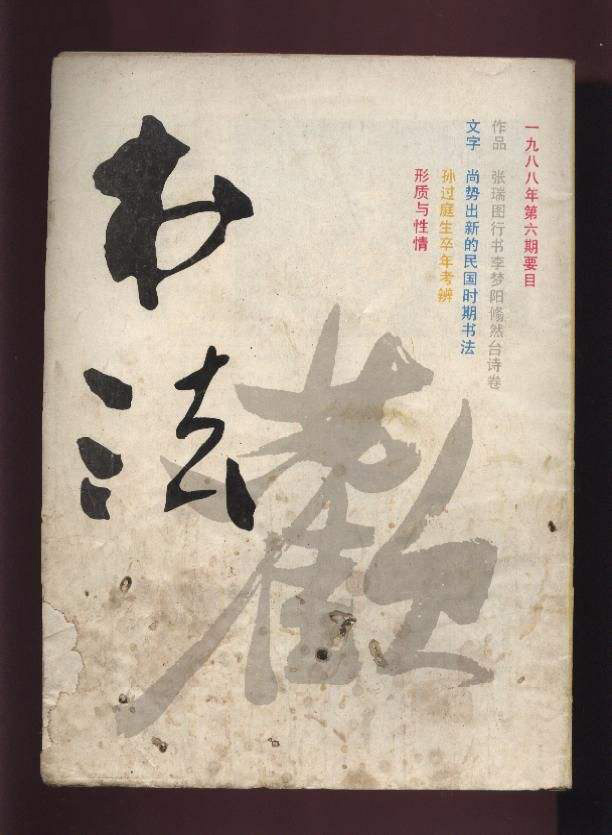 一九八八年第六期要目
作品 张瑞图行书李梦阳翛然台诗卷
文字 尚势出新的民国时期书法
孙过庭生卒年考辨
形质与性情
书法
歡